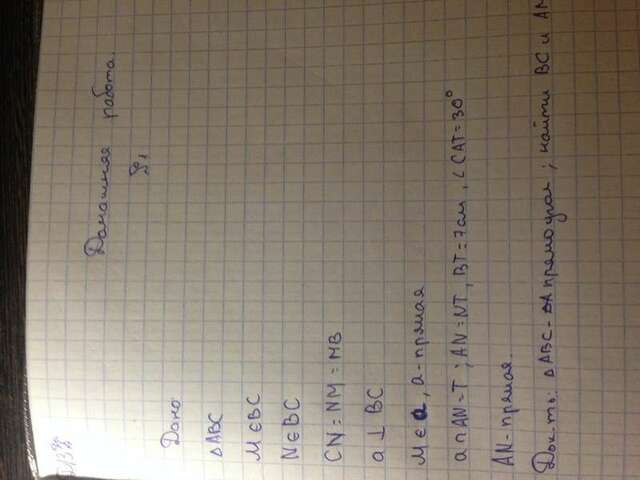 Домашняя работа.
Дано
△ABC
M∈BC
N∈BC
CN=NM=MB
a⊥BC
M∈a, a-прямая
a∩AN=T; AN=NT, BT=7см, ∠CAT=30°
AN-прямая.
Док.ть: △ABC- прямоугол; найти BC и AM